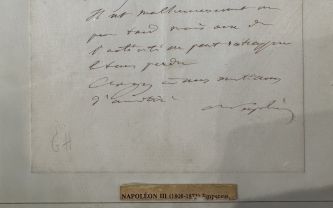 Il est malheureusement un
peu tard mais avec de
l'activité on peut rattraper
le temps perdu
Croyez à mes sentiments
d'amitié
Napoléon
NAPOLÉON III (1808-1873) Empereur